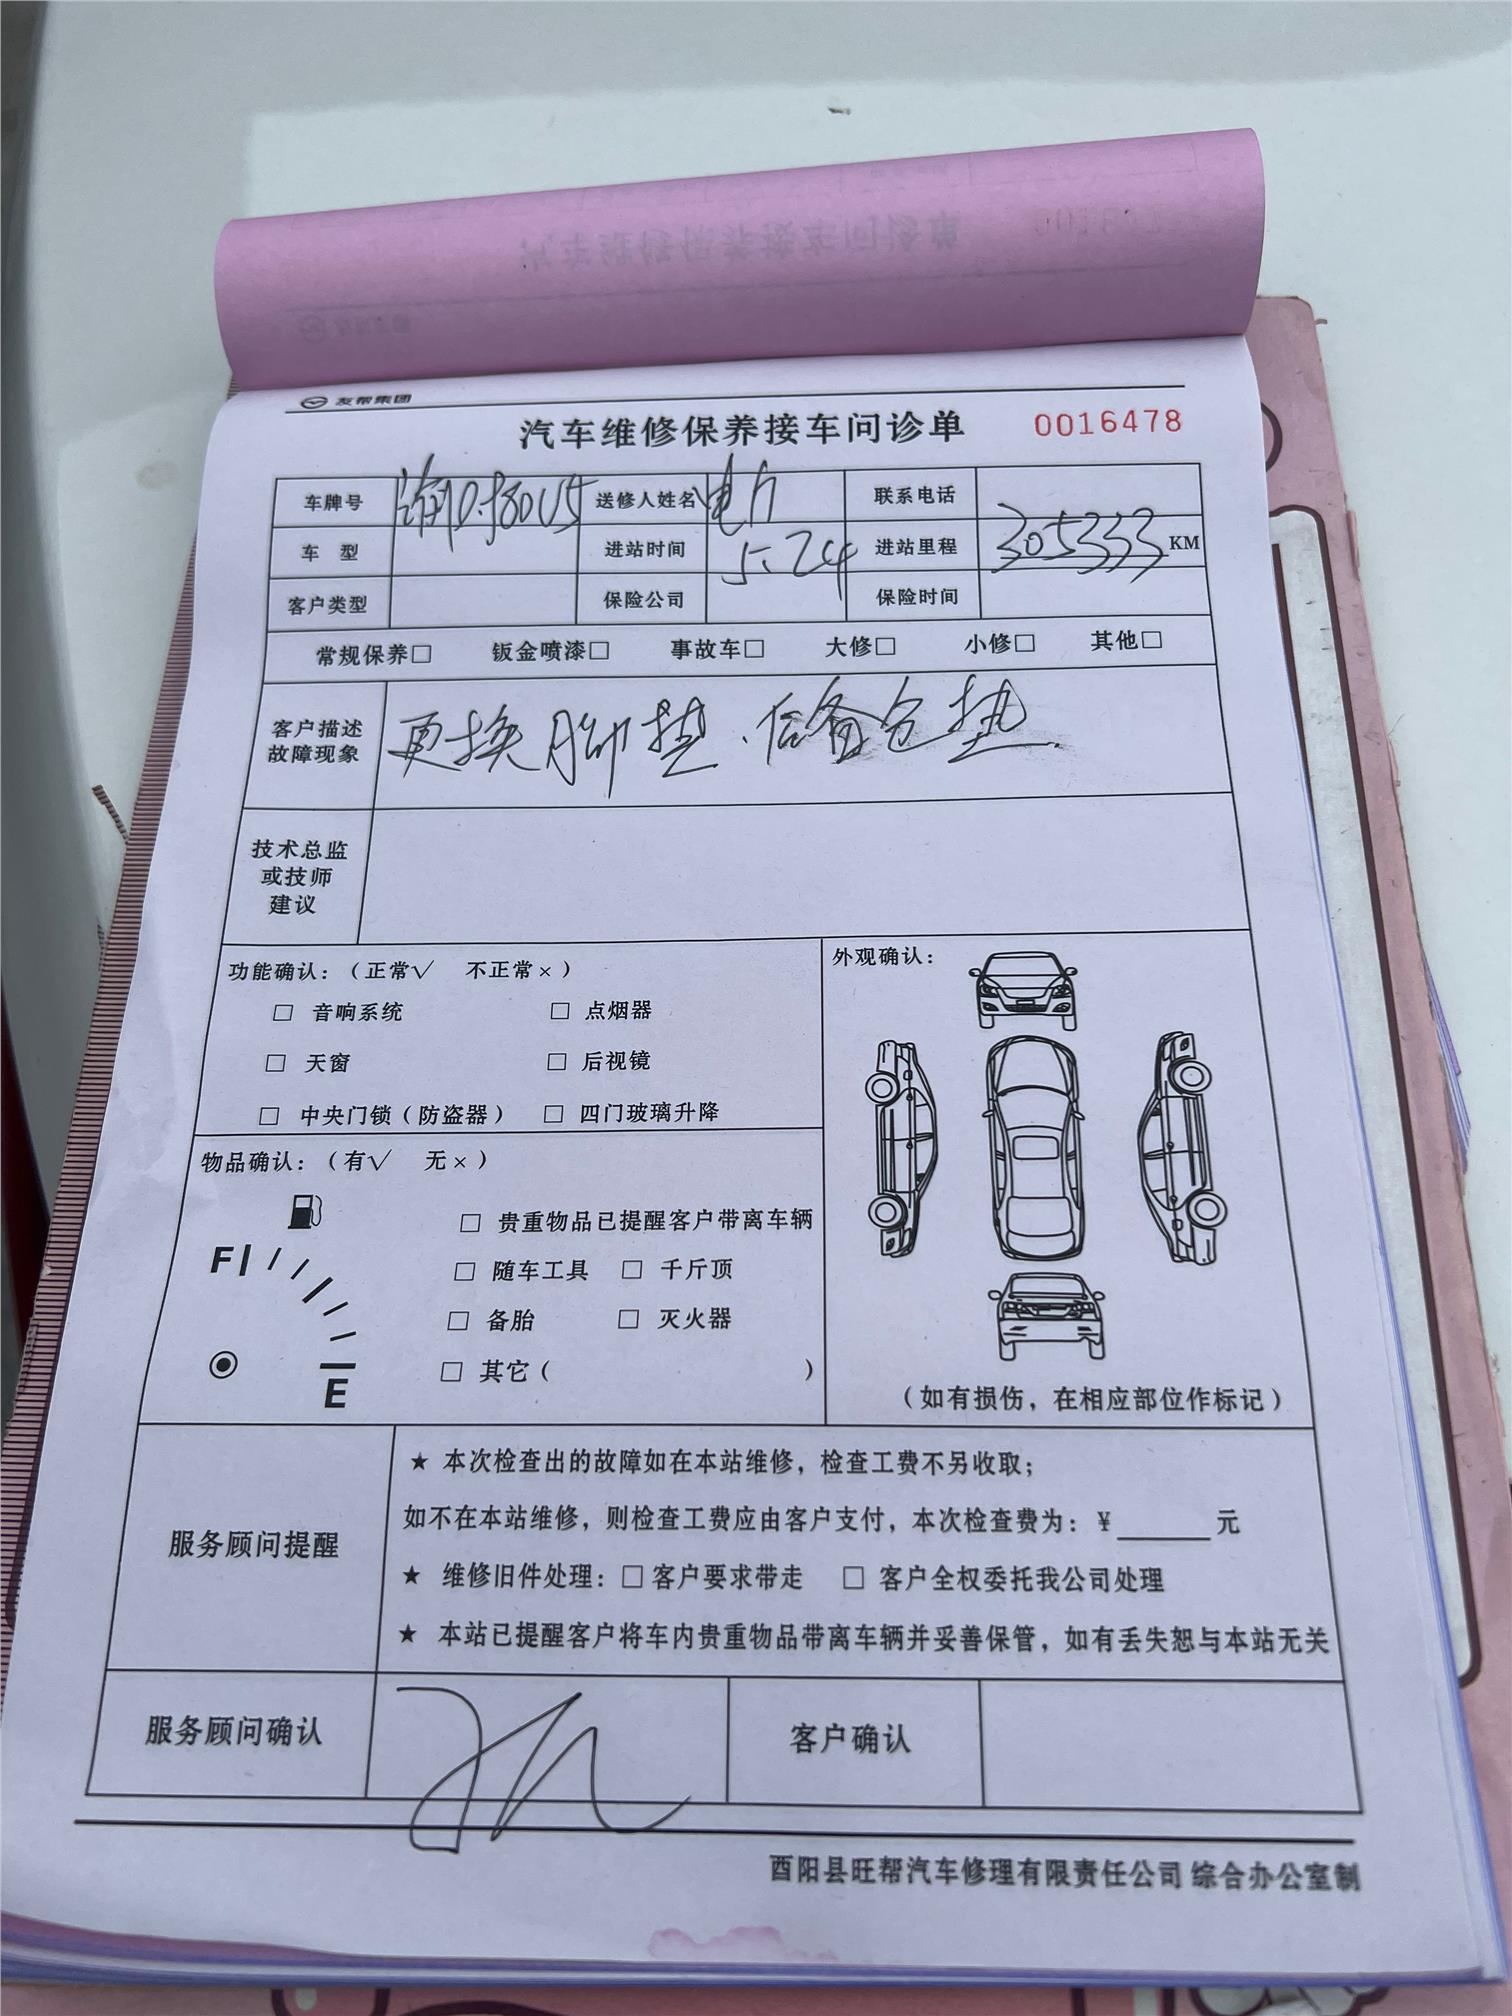 友帮集团
汽车维修保养接车问诊单 0016478
车牌号 渝D·580U5 送修人姓名 电力 联系电话
车 型 进站时间 5.24 进站里程 305333 KM
客户类型 保险公司 保险时间
常规保养□ 钣金喷漆□ 事故车□ 大修□ 小修□ 其他□
客户描述 更换脚垫、后备仓垫.
故障现象
技术总监
或技师
建议
功能确认:(正常√ 不正常×)
□ 音响系统 □ 点烟器
□ 天窗 □ 后视镜
□ 中央门锁(防盗器) □ 四门玻璃升降
外观确认:
物品确认:(有√ 无×)
□ 贵重物品已提醒客户带离车辆
F
□ 随车工具 □ 千斤顶
□ 备胎 □ 灭火器
□ 其它( )
E
(如有损伤,在相应部位作标记)
服务顾问提醒
★ 本次检查出的故障如在本站维修,检查工费不另收取;
如不在本站维修,则检查工费应由客户支付,本次检查费为:¥______元
★ 维修旧件处理:□客户要求带走 □ 客户全权委托我公司处理
★ 本站已提醒客户将车内贵重物品带离车辆并妥善保管,如有丢失恕与本站无关
服务顾问确认 客户确认
酉阳县旺帮汽车修理有限责任公司 综合办公室制